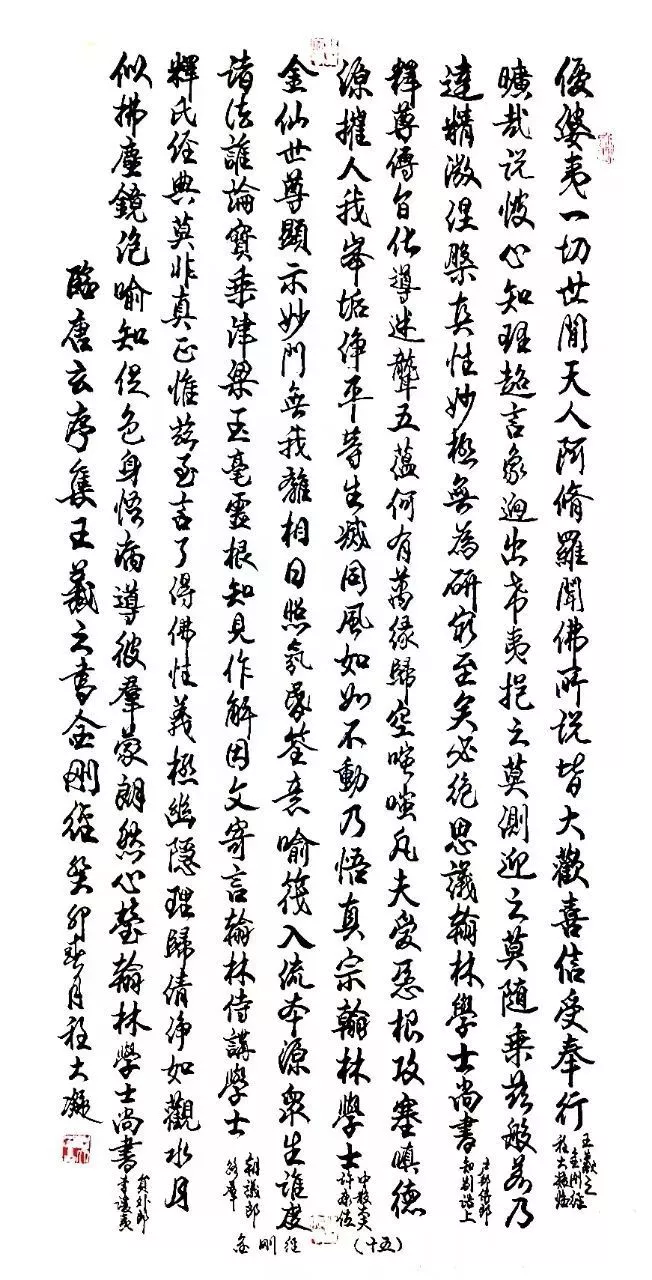 優婆夷一切世間天人阿脩羅聞佛所說皆大歡喜信受奉行
王羲之金剛經程大凝臨
曠哉說彼心知理超言象迥出希夷挹之莫測迎之莫隨乘茲般若乃
達精微涅槃真性妙極無為研窮至矣必絕思議翰林學士尚書
知制誥上
釋尊傳旨化導迷聾五蘊何有萬緣歸空嗤嗤凡夫受惡根攻塞嗔德
源摧人我峯垢淨平等生滅同風如如不動乃悟真宗翰林學士
中散大夫
金仙世尊顯示妙門無我離相日照氛昏筌意喻筏入流本源衆生誰度
諸法誰論寶乘津梁玉毫靈根知見作解因文寄言翰林侍講學士
朝議郎
釋氏經典莫非真正惟茲至言了得佛性義極幽隱理歸清淨如觀水月
似拂塵鏡泡喻知促色身悟病導彼羣蒙朗然心瑩翰林學士尚書
員外郎
臨唐玄序集王羲之書金剛經癸卯春月程大凝
金剛經 (十五)